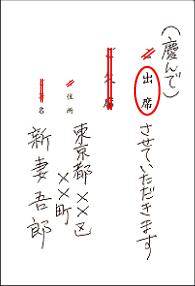 （慶んで）
出席 させていただきます
欠席
住所 東京都××区
××町
名 新妻吾郎